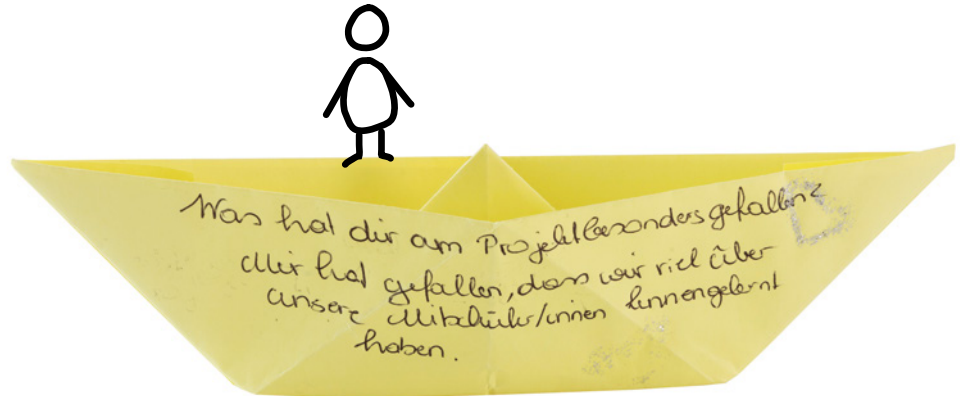 Was hat dir am Projekt besonders gefallen?
Mir hat gefallen, dass wir viel über
unsere Mitschüler/innen kennengelernt
haben.